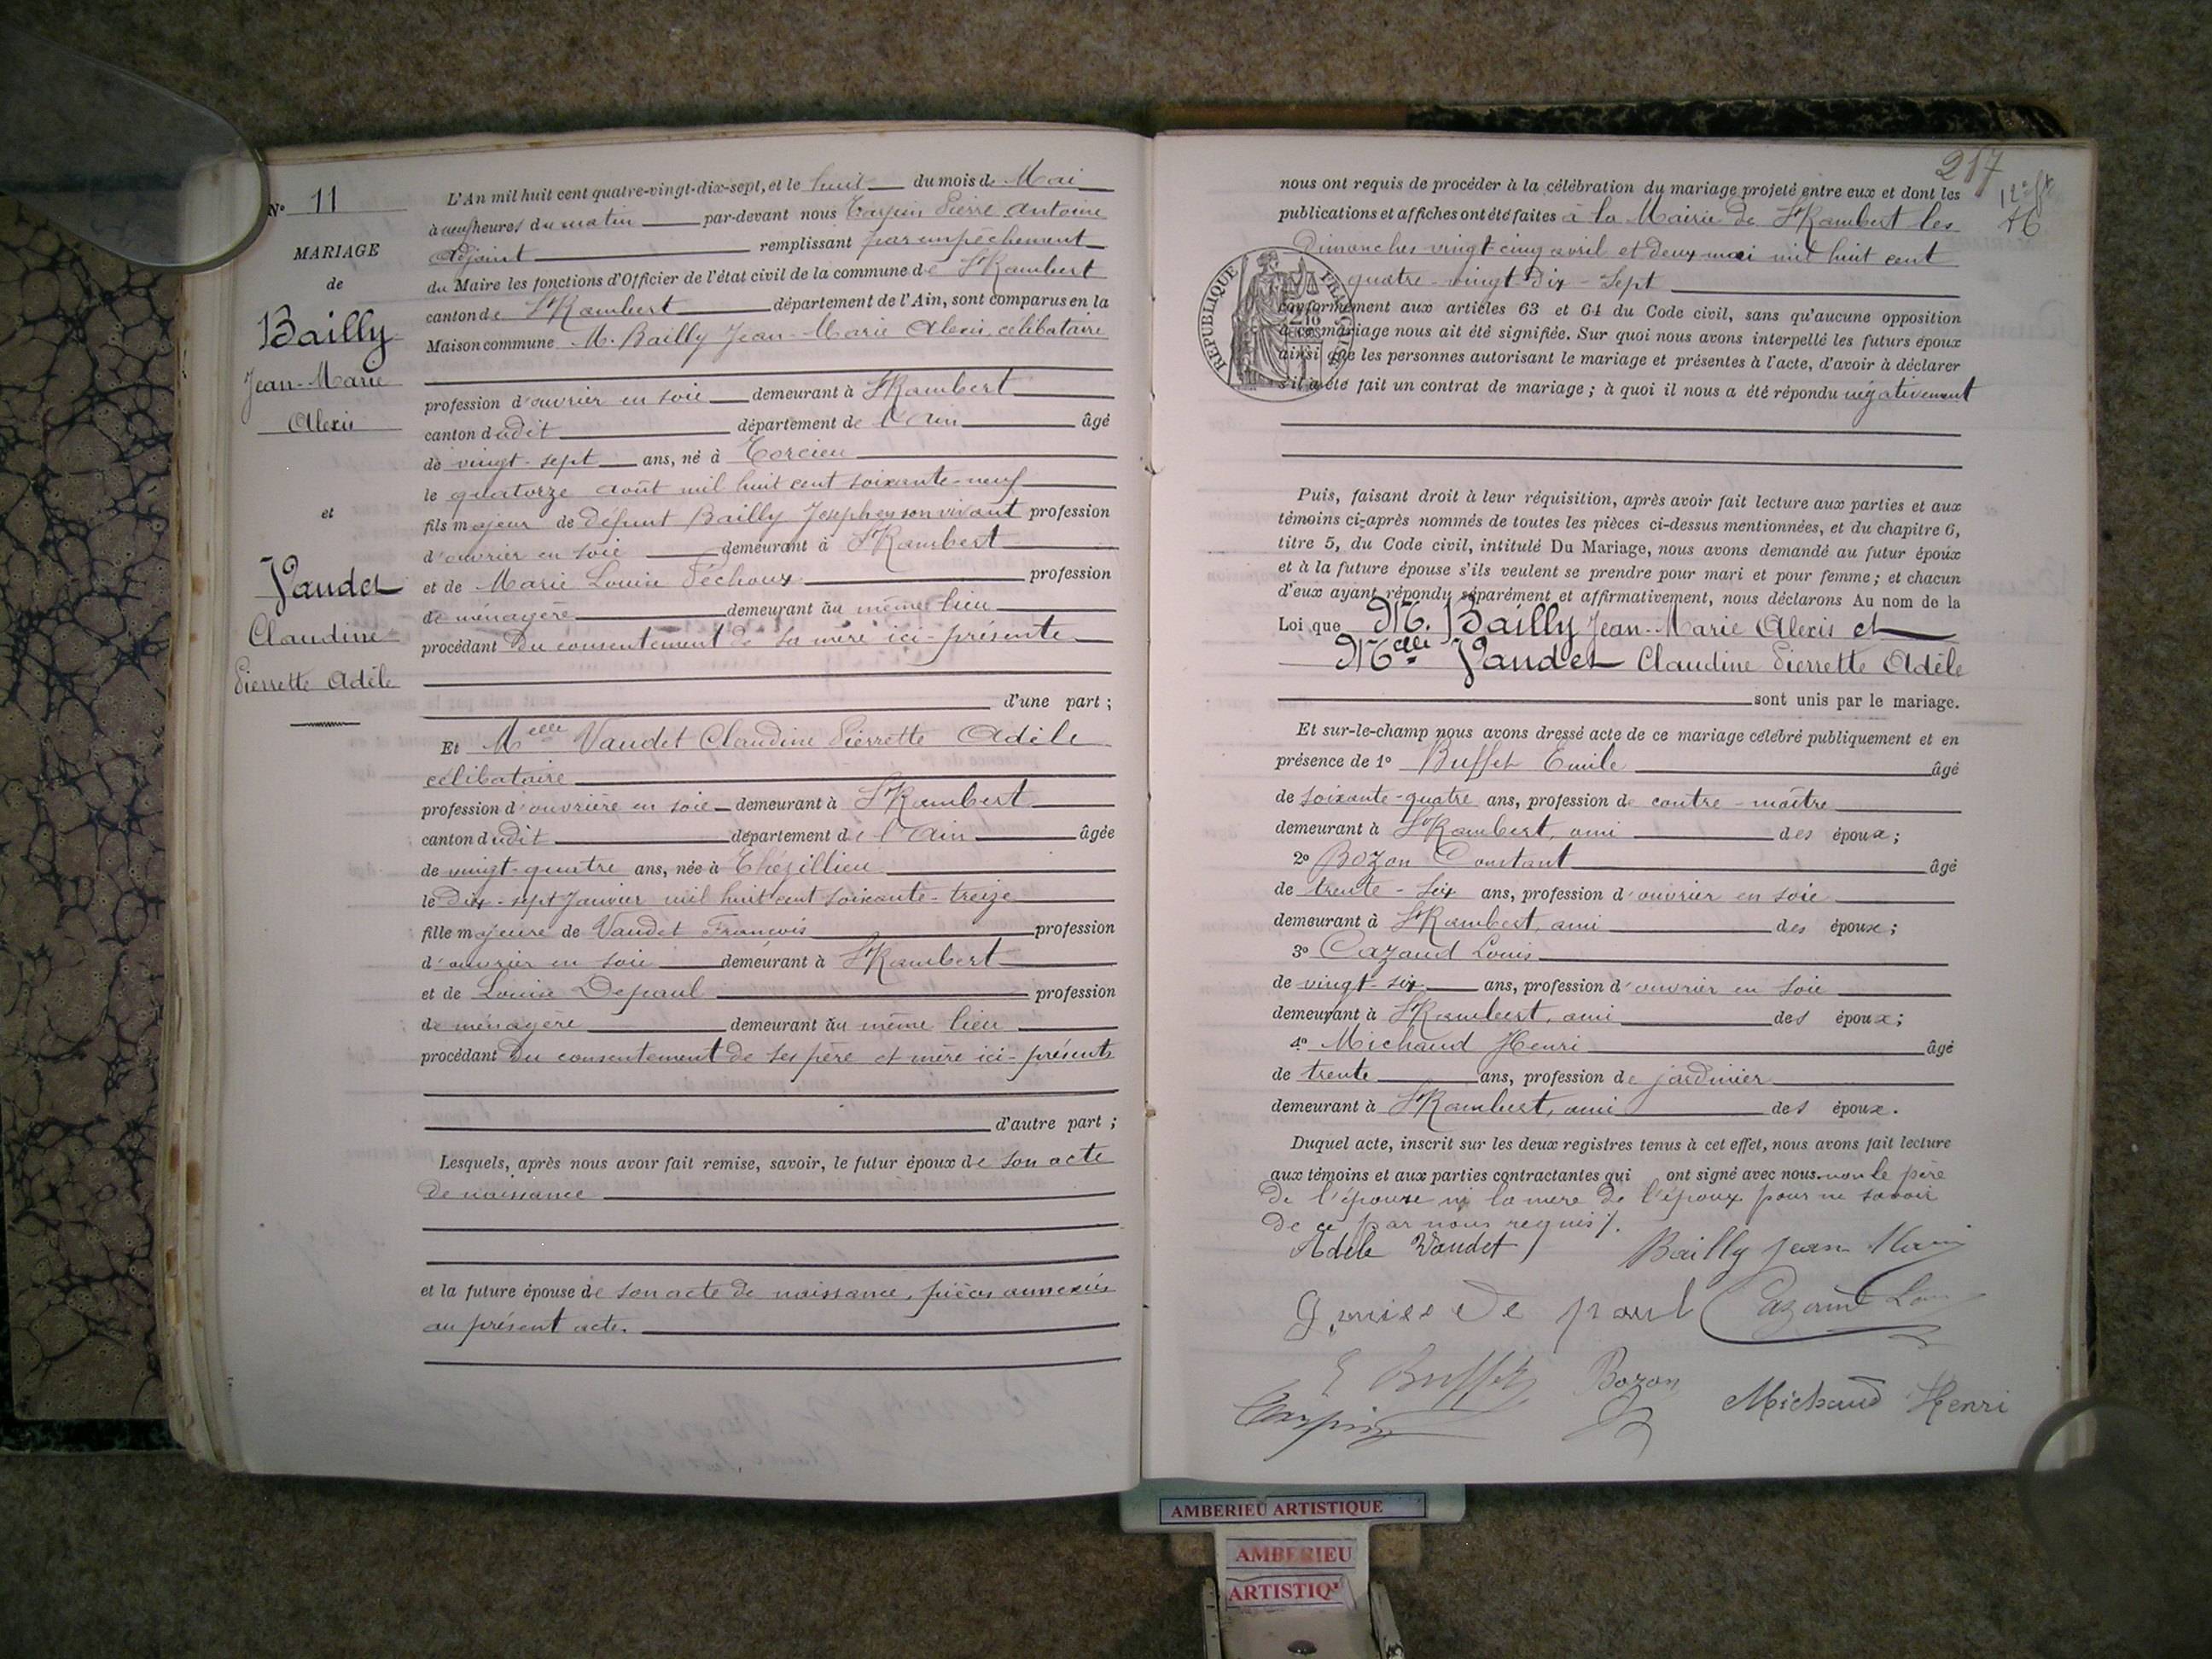 N° 11
MARIAGE
de
Bailly
Jean-Marie
Alexis
et
Vaudet
Claudine
Pierrette Adèle
L'An mil huit cent quatre-vingt-dix-sept, et le huit du mois de Mai
à neuf heures du matin par-devant nous Tarpin Pierre Antoine
adjoint remplissant par empêchement
du Maire les fonctions d'Officier de l'état civil de la commune de St Rambert
canton de St Rambert département de l'Ain, sont comparus en la
Maison commune M. Bailly Jean-Marie Alexis, célibataire
profession d'ouvrier en soie demeurant à St Rambert
canton dudit département de l'Ain âgé
de vingt-sept ans, né à Torcieu
le quatorze août mil huit cent soixante-neuf
fils majeur de défunt Bailly Joseph en son vivant profession
d'ouvrier en soie demeurant à St Rambert
et de Marie Louise Péchoux profession
de ménagère demeurant au même lieu
procédant du consentement de sa mère ici-présente
d'une part ;
Et Melle Vaudet Claudine Pierrette Adèle
célibataire
profession d'ouvrière en soie demeurant à St Rambert
canton dudit département de l'Ain âgée
de vingt-quatre ans, née à Thézillieu
le dix-sept Janvier mil huit cent soixante-treize
fille majeure de Vaudet François profession
d'ouvrier en soie demeurant à St Rambert
et de Louise Depaul profession
de ménagère demeurant au même lieu
procédant du consentement de ses père et mère ici-présents
d'autre part ;
Lesquels, après nous avoir fait remise, savoir, le futur époux de son acte
de naissance
et la future épouse de son acte de naissance, pièces annexées
au présent acte.
217
nous ont requis de procéder à la célébration du mariage projeté entre eux et dont les
publications et affiches ont été faites à la Mairie de St Rambert les
Dimanches vingt-cinq avril et deux mai mil huit cent
quatre-vingt-dix-sept
REPUBLIQUE FRANÇAISE
conformément aux articles 63 et 64 du Code civil, sans qu'aucune opposition
à ce mariage nous ait été signifiée. Sur quoi nous avons interpellé les futurs époux
ainsi que les personnes autorisant le mariage et présentes à l'acte, d'avoir à déclarer
s'il a été fait un contrat de mariage ; à quoi il nous a été répondu négativement
Puis, faisant droit à leur réquisition, après avoir fait lecture aux parties et aux
témoins ci-après nommés de toutes les pièces ci-dessus mentionnées, et du chapitre 6,
titre 5, du Code civil, intitulé Du Mariage, nous avons demandé au futur époux
et à la future épouse s'ils veulent se prendre pour mari et pour femme ; et chacun
d'eux ayant répondu séparément et affirmativement, nous déclarons Au nom de la
Loi que M. Bailly Jean-Marie Alexis et
Melle Vaudet Claudine Pierrette Adèle
sont unis par le mariage.
Et sur-le-champ nous avons dressé acte de ce mariage célébré publiquement et en
présence de 1° Buffet Emile âgé
de soixante-quatre ans, profession de contre-maître
demeurant à St Rambert, ami des époux ;
2° Bozon Constant âgé
de trente-six ans, profession d'ouvrier en soie
demeurant à St Rambert, ami des époux ;
3° Cazaud Louis
de vingt-six ans, profession d'ouvrier en soie
demeurant à St Rambert, ami des époux ;
4° Michaud Henri âgé
de trente ans, profession de jardinier
demeurant à St Rambert, ami des époux.
Duquel acte, inscrit sur les deux registres tenus à cet effet, nous avons fait lecture
aux témoins et aux parties contractantes qui ont signé avec nous non le père
de l'épouse ni la mère de l'époux pour ne savoir
de ce par nous requis
Adèle Vaudet Bailly Jean Marie
Louise De paul Cazaud Louis
E Buffet Bozon Michaud Henri
Tarpin
AMBERIEU ARTISTIQUE
AMBERIEU
ARTISTIQ